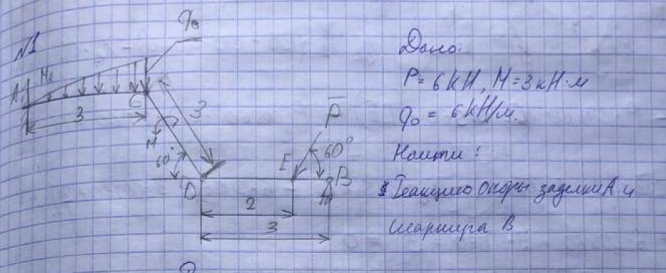 N1
q₀
A
M
C
3
3
M
60°
D
E
P̅
60°
B
2
3
Дано:
P = 6 кН, M = 3 кН·м
q₀ = 6 кН/м.
Найти:
Реакцию опоры заделки A и
шарнира B